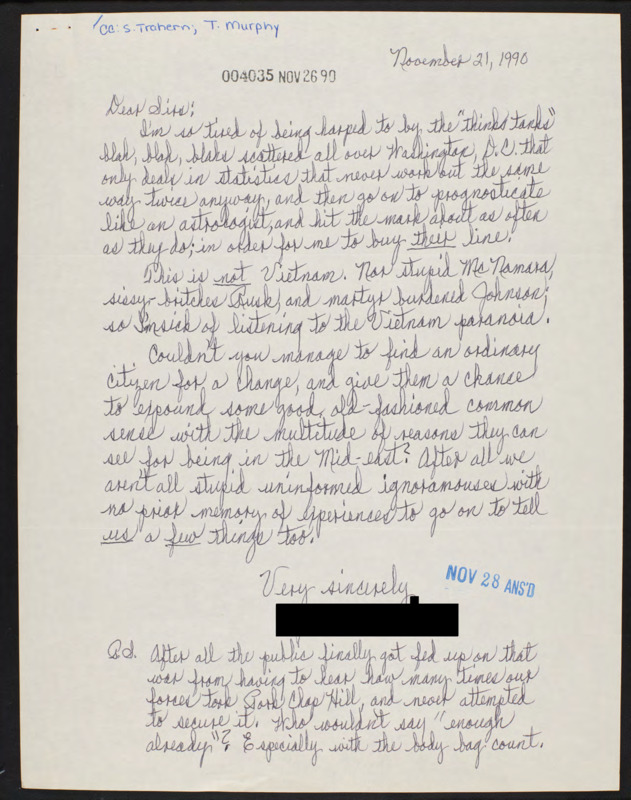 cc: S. Trahern; T. Murphy
November 21, 1990
004035 NOV 26 90
Dear Sirs;
I'm so tired of being harped to by the "thinks tanks"
blah, blah, blahs scattered all over Washington, D.C. that
only deals in statistics that never work out the same
way twice anyway, and then go on to prognosticate
like an astrologist, and hit the mark about as often
as they do; in order for me to buy their line.
This is not Vietnam. Nor stupid McNamara,
sissy-britches Rusk, and martyr burdened Johnson;
so I'm sick of listening to the Vietnam paranoia.
Couldn't you manage to find an ordinary
citizen for a change, and give them a chance
to expound some good, old-fashioned common
sense with the multitude of reasons they can
see for being in the Mid-east? After all we
aren't all stupid uninformed ignoramouses with
no prior memory of experiences to go on to tell
us a few things too.
Very sincerely,
NOV 28 ANS'D
P.S. After all the public finally got fed up on that
war from having to hear how many times our
forces took Pork Chop Hill, and never attempted
to secure it. Who wouldn't say "enough
already"? Especially with the body bag count.